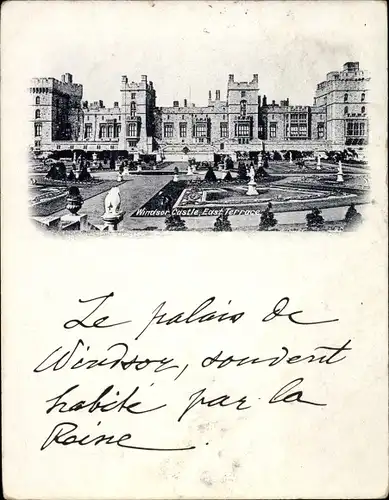 Windsor Castle, East Terrace
Le palais de
Windsor, souvent
habité par la
Reine.